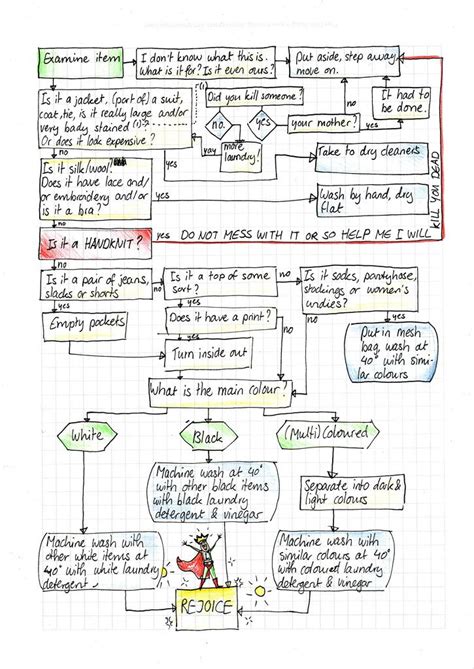 Examine item
I don't know what this is.
What is it for? Is it even ours?
Put aside, step away
move on.
Is it a jacket, (part of) a suit,
coat, tie, is it really large and/or
very badly stained (1)
Or does it look expensive?
(1) Did you kill someone?
no.
yes
your mother?
It had to
be done.
yes
yay
more
laundry!
Take to dry cleaners
no
Is it silk/wool?
Does it have lace and/
or embroidery and/or
is it a bra?
yes
Wash by hand, dry
flat
no
Is it a HANDKNIT?
yes
DO NOT MESS WITH IT OR SO HELP ME I WILL
KILL YOU DEAD
no
Is it a pair of jeans,
slacks or shorts
no
Is it a top of some
sort?
no
Is it socks, pantyhose,
stockings or women's
undies?
yes
Empty pockets
yes
Does it have a print?
no
yes
Turn inside out
no
yes
Put in mesh
bag, wash at
40° with simi-
lar colours
What is the main colour?
White
Black
(Multi)Coloured
Machine wash at 40°
with other black items
with black laundry
detergent & vinegar
Separate into dark &
light colours
Machine wash with
other white items at
40° with white laundry
detergent
Machine wash with
similar colours at 40°
with coloured laundry
detergent & vinegar
REJOICE